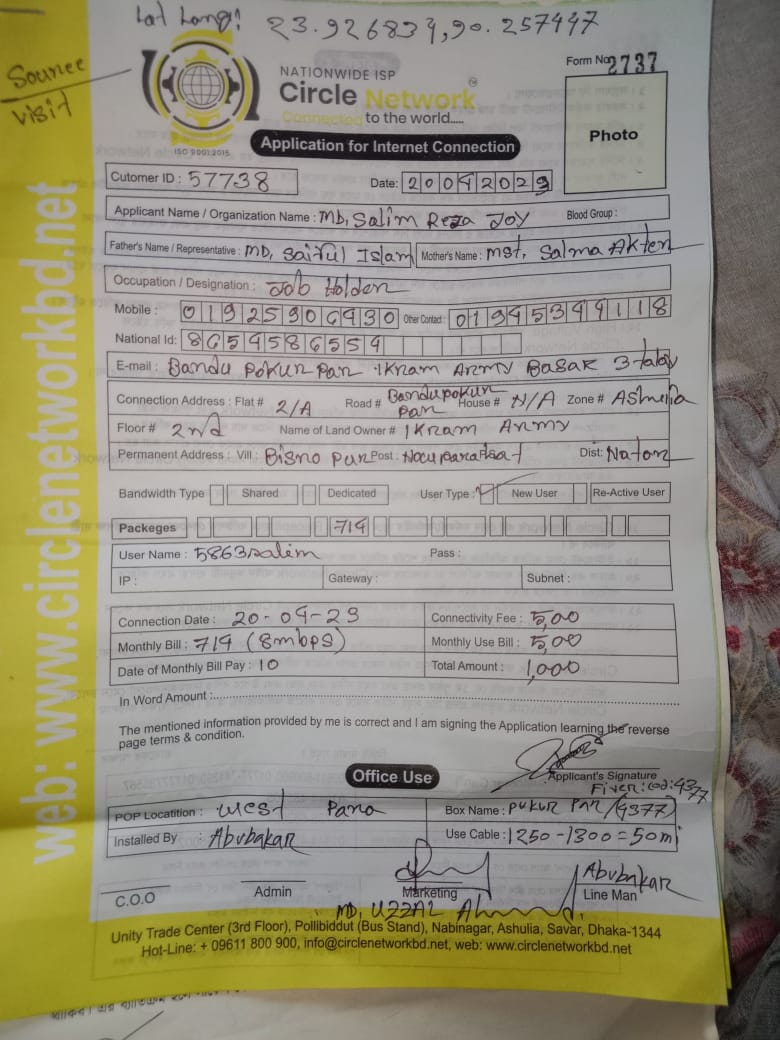 Lat Long: 23.926834,90.257447
Sounee
visit
NATIONWIDE ISP
Circle Network
Connected to the world.....
ISO 9001:2015
Form No 2737
Photo
Application for Internet Connection
Cutomer ID : 57738 Date: 20042023
Applicant Name / Organization Name : MD, Salim Reza Joy Blood Group :
Father's Name / Representative : MD, Saiful Islam Mother's Name : Mst, Salma Akter
Occupation / Designation : Job Holder
Mobile : 01925906430 Other Contact : 01945344118
National Id: 8654586554
E-mail : Bandu Pokur Par Ikram Army Basar 3 talay
Connection Address : Flat # 2/A Road # Bandupokur Par House # N/A Zone # Ashulia
Floor # 2nd Name of Land Owner # Ikram Army
Permanent Address : Vill : Bisno Pur Post : Dist: Nator
Bandwidth Type Shared Dedicated User Type : New User Re-Active User
Packeges 714
User Name : 5863salim Pass :
IP : Gateway : Subnet :
Connection Date : 20-04-23 Connectivity Fee : 5,00
Monthly Bill : 714 (8mbps) Monthly Use Bill : 5,00
Date of Monthly Bill Pay : 10 Total Amount : 1,000
In Word Amount :
The mentioned information provided by me is correct and I am signing the Application learning the reverse
page terms & condition.
Applicant's Signature
Office Use
Fiver: cod: 4377
POP Locatition : West Para Box Name : Pukur Par (4377)
Installed By : Abubakar Use Cable : 1250-1300=50m
C.O.O Admin Marketing Abubakar
Line Man
MD, Uzzal Ahmed.
Unity Trade Center (3rd Floor), Pollibiddut (Bus Stand), Nabinagar, Ashulia, Savar, Dhaka-1344
Hot-Line: + 09611 800 900, info@circlenetworkbd.net, web: www.circlenetworkbd.net
web: www.circlenetworkbd.net